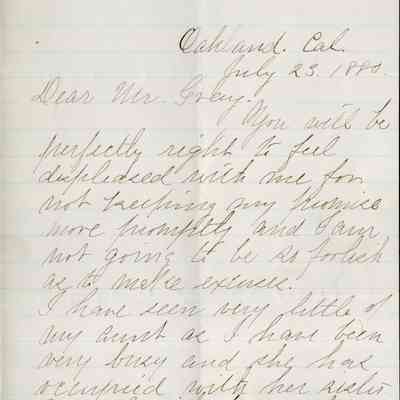 Oakland. Cal.
July 23. 1880.
Dear Mr. Gray.
You will be
perfectly right to feel
displeased with me for
not keeping my promise
more promptly and I am
not going to be so foolish
as to make excuses.
I have seen very little of
my aunt as I have been
very busy and she has
occupied with her sister